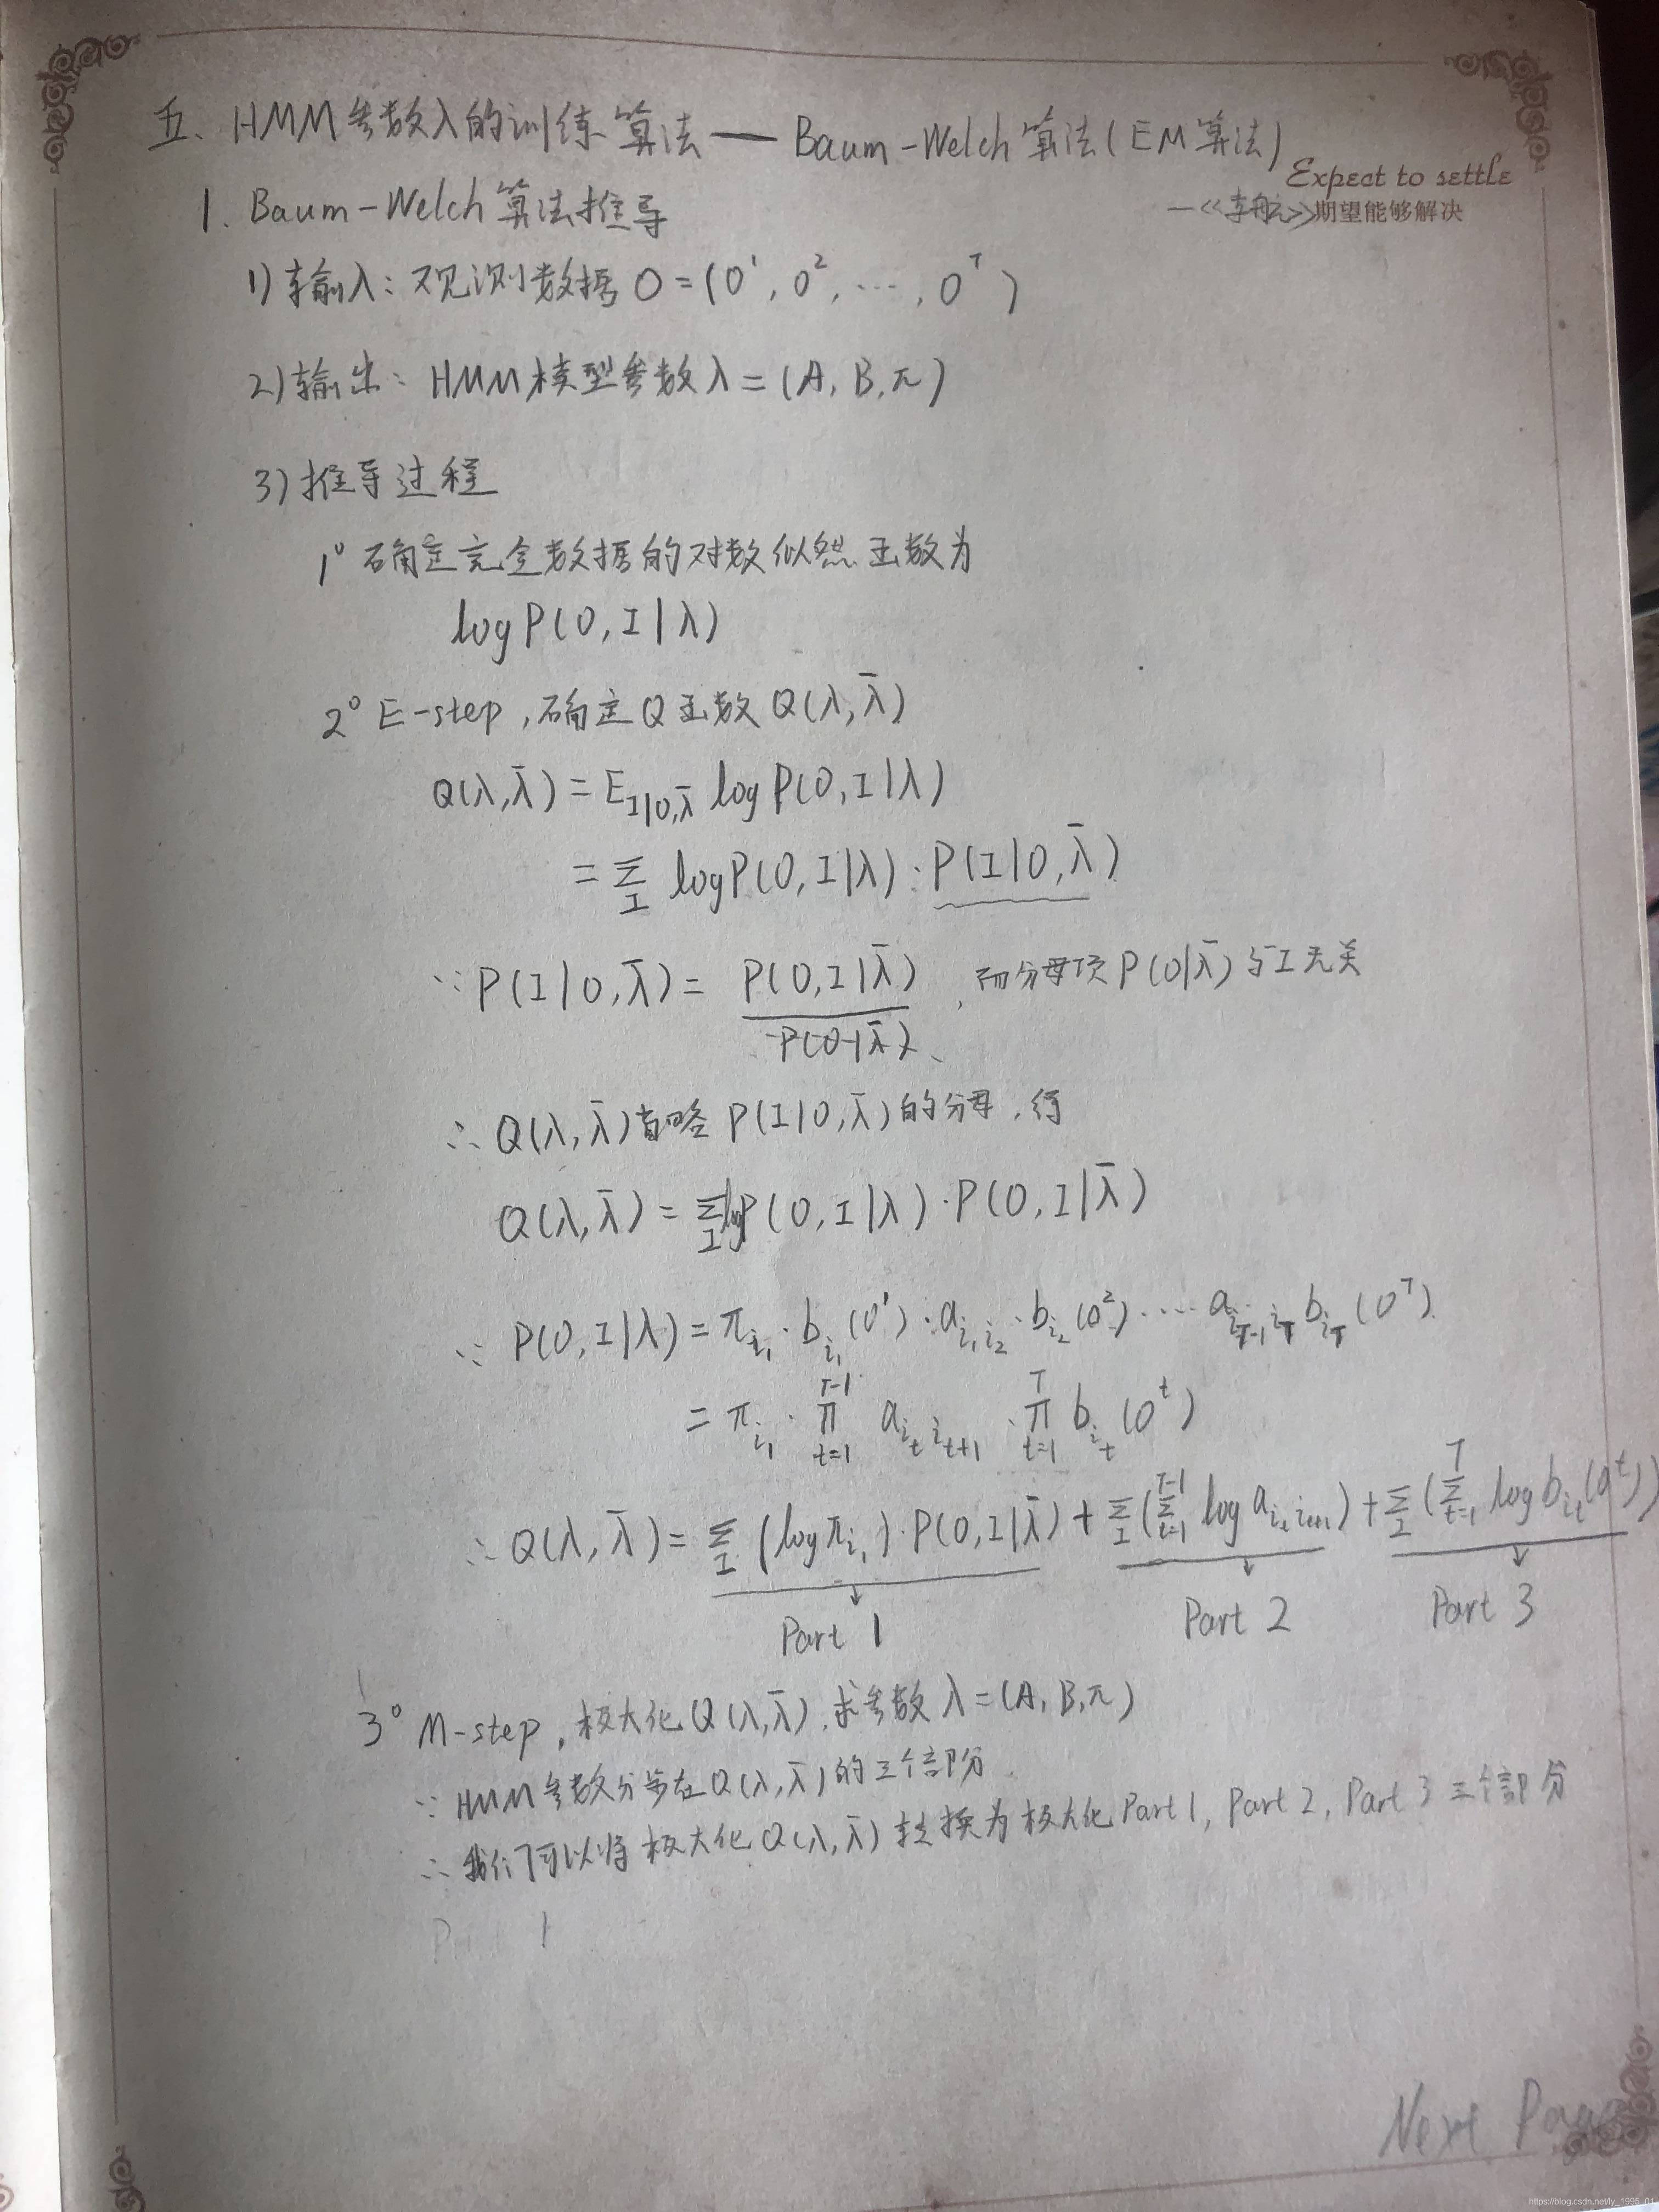 五、HMM参数λ的训练算法——Baum-Welch算法(EM算法)
Expect to settle
—<<李航>>期望能够解决
1. Baum-Welch算法推导
1) 输入: 观测数据 O=(O¹, O², ⋯, Oᵀ)
2) 输出: HMM模型参数 λ=(A, B, π)
3) 推导过程
1° 确定完全数据的对数似然函数为
log P(O, I | λ)
2° E-step, 确定Q函数 Q(λ, λ̄)
Q(λ, λ̄) = E_{I|O,λ̄} log P(O, I | λ)
= Σ_I log P(O, I | λ) · P(I | O, λ̄)
∵ P(I | O, λ̄) = P(O, I | λ̄) / P(O | λ̄), 而分母项 P(O | λ̄) 与 I 无关
∴ Q(λ, λ̄) 省略 P(I | O, λ̄) 的分母, 得
Q(λ, λ̄) = Σ_I log P(O, I | λ) · P(O, I | λ̄)
∵ P(O, I | λ) = π_{i_1} · b_{i_1}(O¹) · a_{i_1 i_2} · b_{i_2}(O²) ⋯ a_{i_{T-1} i_T} b_{i_T}(Oᵀ)
= π_{i_1} · ∏_{t=1}^{T-1} a_{i_t i_{t+1}} · ∏_{t=1}^{T} b_{i_t}(Oᵗ)
∴ Q(λ, λ̄) = Σ_I (log π_{i_1}) · P(O, I | λ̄) + Σ_I (Σ_{t=1}^{T-1} log a_{i_t i_{t+1}}) + Σ_I (Σ_{t=1}^{T} log b_{i_t}(Oᵗ))
↓ ↓ ↓
Part 1 Part 2 Part 3
3° M-step, 极大化 Q(λ, λ̄), 求参数 λ=(A, B, π)
∵ HMM参数分步在 Q(λ, λ̄) 的三个部分
∴ 我们可以将极大化 Q(λ, λ̄) 转换为极大化 Part 1, Part 2, Part 3 三个部分
Next Page
https://blog.csdn.net/lv_1995_01